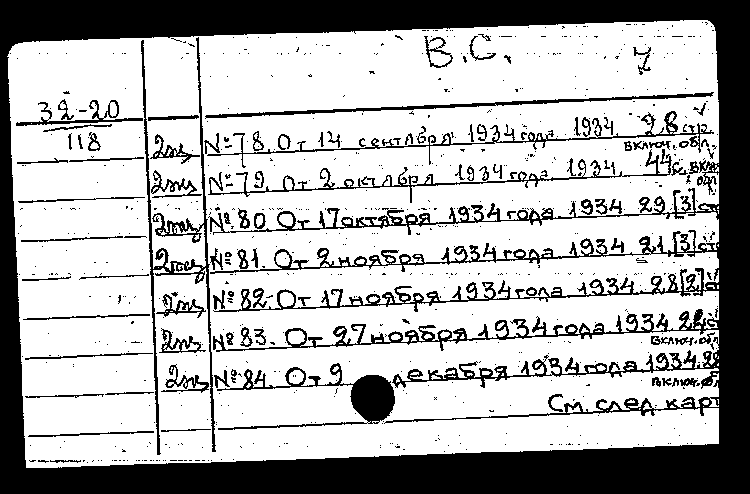 В.С. 7
32-20
118
2экз №78. От 14 сентября 1934 года 1934. 28 стр. включ. обл.
2экз №79. От 2 октября 1934 года. 1934. 44 с. вкл. обл
2экз №80 От 17 октября 1934 года 1934 29,[3] стр
2экз №81. От 2 ноября 1934 года 1934 21,[3] стр
2экз №82. От 17 ноября 1934 года 1934. 28[2] с
2экз №83. От 27 ноября 1934 года 1934 включ. обл
2экз №84. От 9 декабря 1934 года 1934. 28 включ. об
См. след. карт